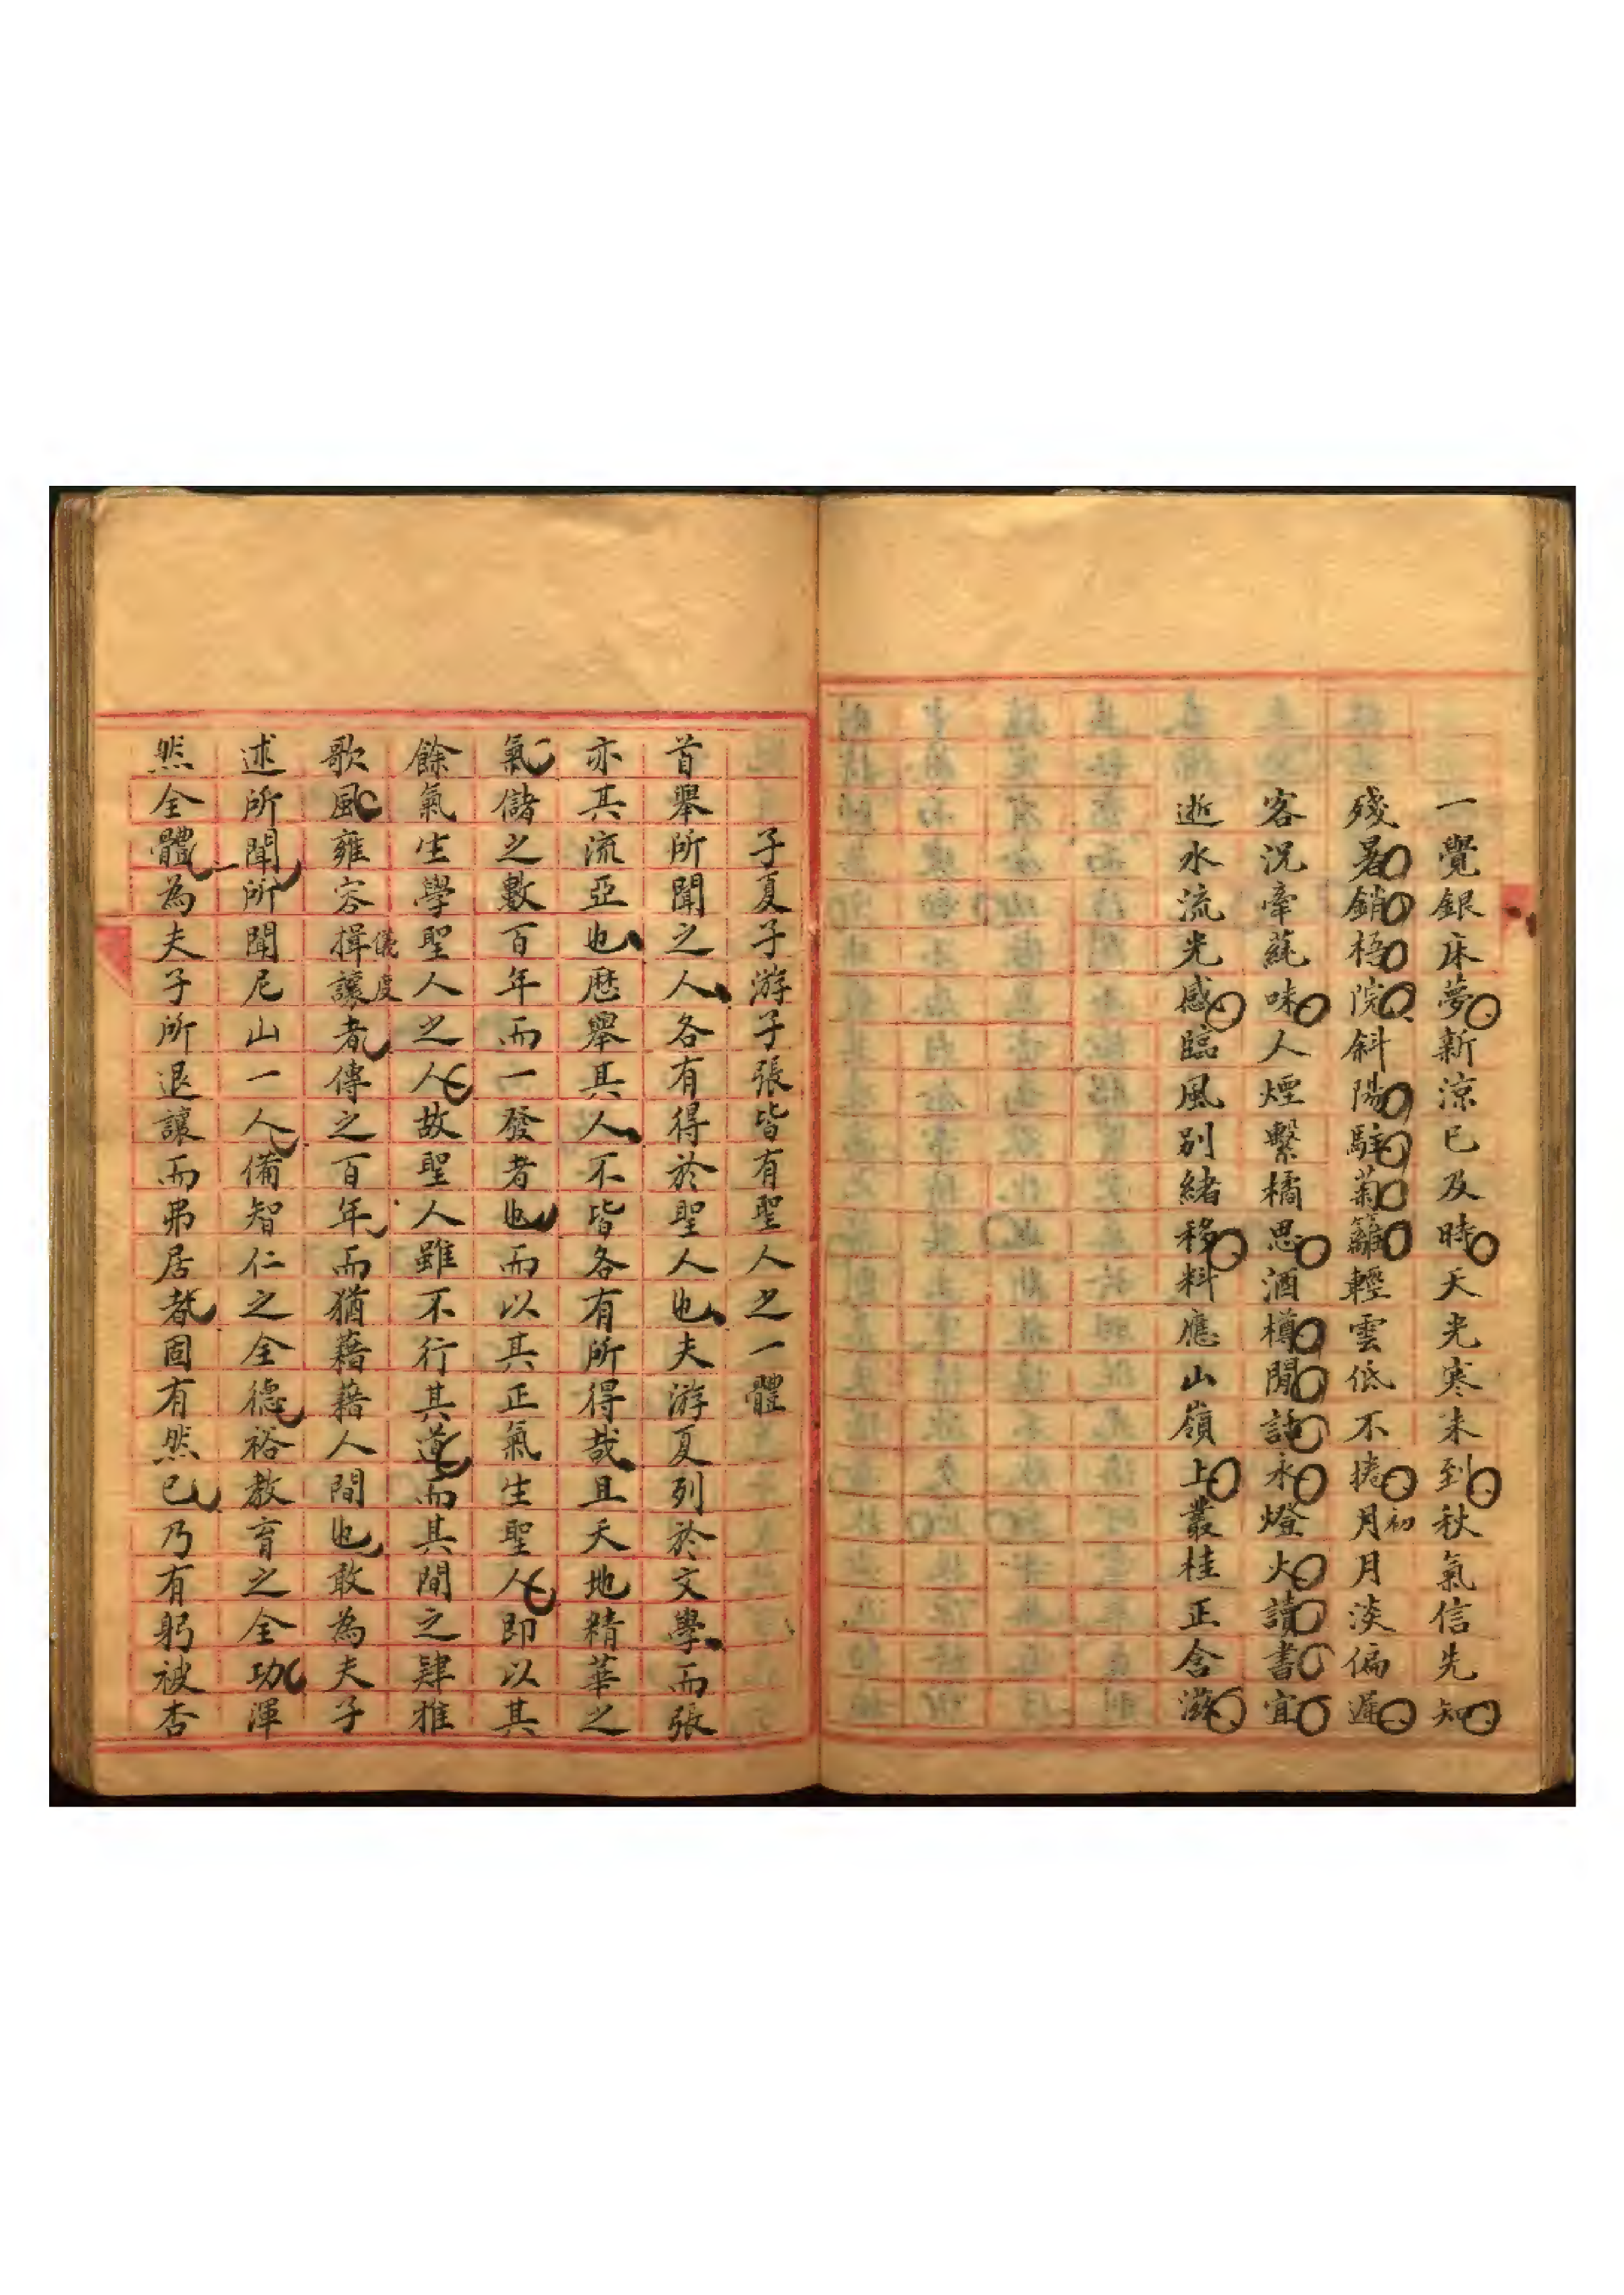 一覺銀床夢新涼已及時天光寒未到秋氣信先知
殘暑銷梧院斜陽駐菊籬輕雲低不捲月初月淡偏遲
客況牽蒓味人煙繫橘思酒樽閒話永燈火讀書宜
逝水流光感臨風別緒移料應山嶺上叢桂正含滋
子夏子游子張皆有聖人之一體
首舉所聞之人各有得於聖人也夫游夏列於文學而張
亦其流亞也歷舉其人不皆各有所得哉且天地精華之
氣儲之數百年而一發者也而以其正氣生聖人即以其
餘氣生學聖人之人故聖人雖不行其道而其間之肄雅
歌風雍容揖讓儀度者傳之百年而猶藉藉人間也敢為夫子
述所聞所聞尼山一人備智仁之全德裕教育之全功渾
然全體為夫子所退讓而弗居者固有然已乃有躬被杏